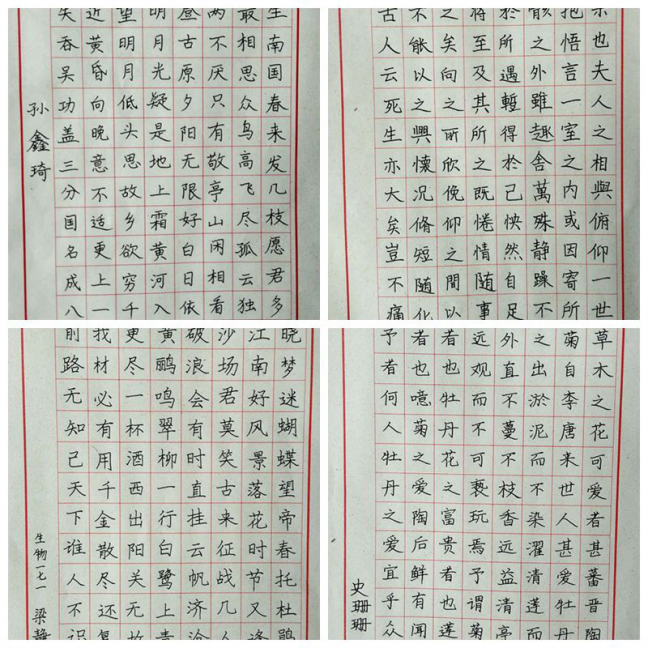 生南国春来发几枝愿君多
最相思众鸟高飞尽孤云独
两不厌只有敬亭山闲相看
登古原夕阳无限好白日依
明月光疑是地上霜黄河入
望明月低头思故乡欲穷千
近黄昏向晚意不适更上一
失吞吴功盖三分国名成八
孙鑫琦
也夫人之相與俯仰一世
抱悟言一室之内或因寄所
骸之外雖趣舍萬殊静躁不
於所遇暫得於己怏然自足
将至及其所之既惓情随事
之矣向之所欣俛仰之間以
不能以之興懷况脩短随化
古人云死生亦大矣豈不痛
晓梦迷蝴蝶望帝春托杜鹃
江南好风景落花时节又逢
沙场君莫笑古来征战几人
破浪会有时直挂云帆济沧
黄鹂鸣翠柳一行白鹭上青
更尽一杯酒西出阳关无故
我材必有用千金散尽还复
前路无知己天下谁人不识
生物一七一 梁静
草木之花可爱者甚蕃晋陶
菊自李唐来世人甚爱牡丹
之出淤泥而不染濯清莲而
外直不蔓不枝香远益清亭
远观而不可亵玩焉予谓菊
者也牡丹花之富贵者也莲
者也噫菊之爱陶后鲜有闻
予者何人牡丹之爱宜乎众
史珊珊